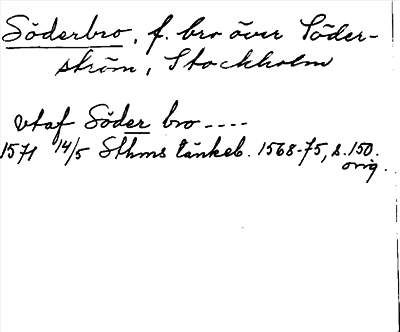 Söderbro, f. bro över Söder-
ström, Stockholm
vtaf Söder bro ----
1571 14/5 Sthms tänkeb. 1568-75, s. 150.
orig.